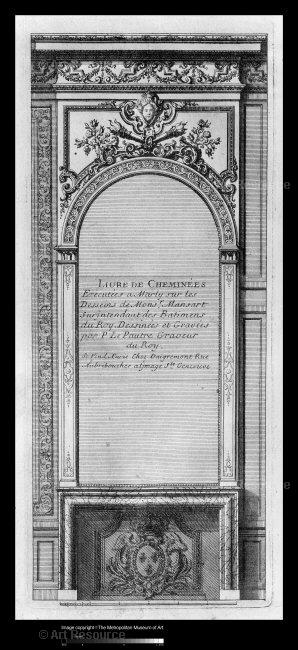 LIURE DE CHEMINÉES
Executées a Marly sur les
Desseins de Mons.r Mansart
Surintendant des Batimens
du Roy. Dessinées et Gravées
par P. Le Pautre Graveur
du Roy.
Se Vend a Paris Chez Daigremont Rue
Aubriboucher a l'image S.te Genevieve
Image copyright ©The Metropolitan Museum of Art
© Art Resource